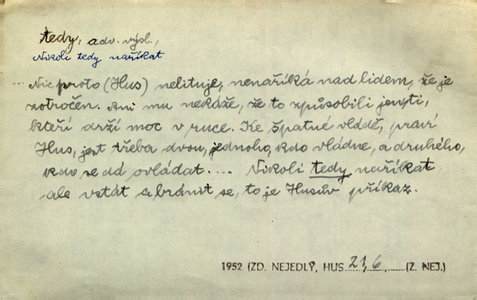 tedy, adv. výsl.,
Nikoli tedy naříkat
Nic proto (Hus) nelituje, nenaříká nad lidem, že je
zotročen. Ani mu nekáže, že to způsobili jen ti,
kteří drží moc v ruce. Ke špatné vládě, praví
Hus, jest třeba dvou, jednoho, kdo vládne, a druhého,
kdo se dá ovládat.... Nikoli tedy naříkat
ale vstát a bránit se, to je Husův příkaz.
1952 (ZD. NEJEDLÝ, HUS 21, 6 (Z. NEJ.)